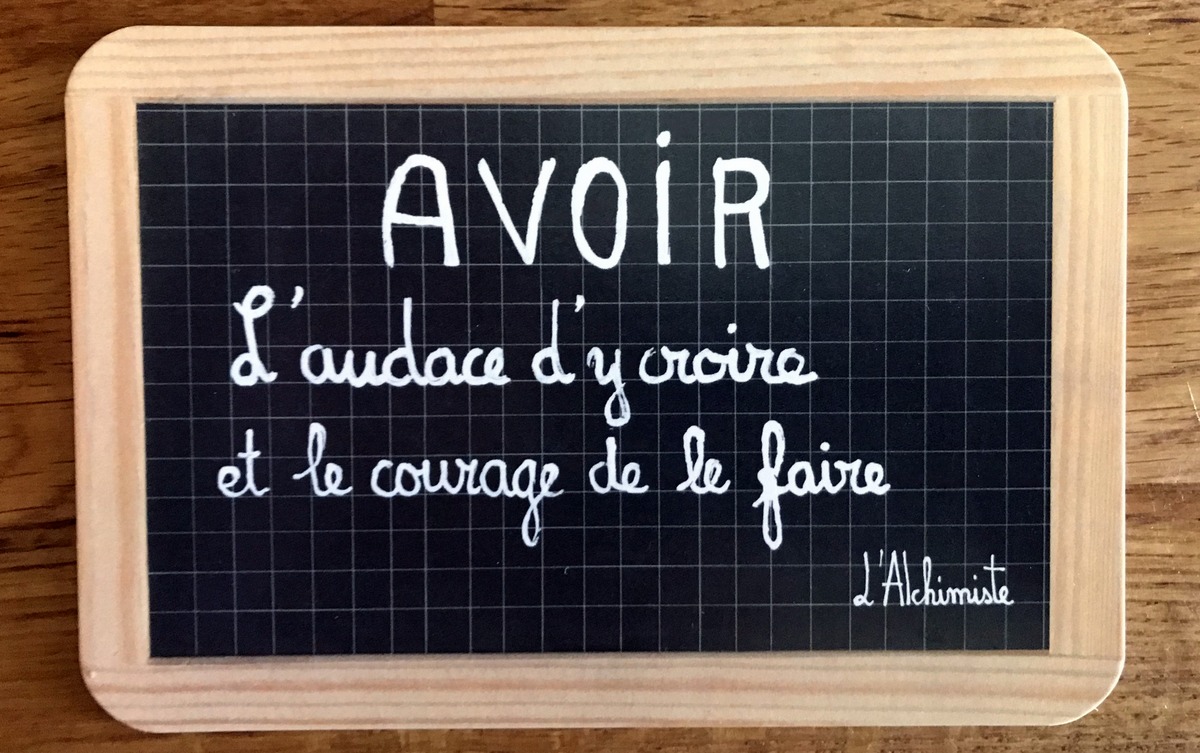 AVOiR
L'audace d'y croire
et le courage de le faire
L'Alchimiste